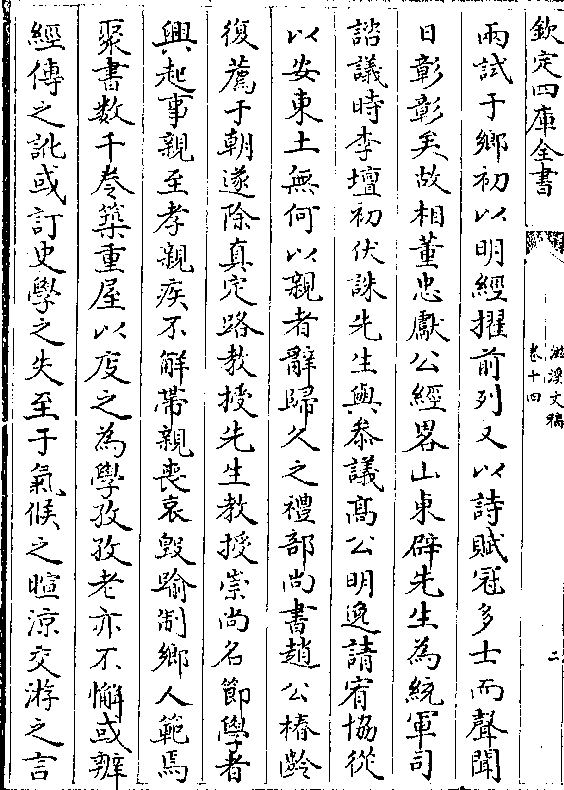 欽定四庫全書
滋溪文稿
卷十四
二
兩試于鄉初以明經擢前列又以詩賦冠多士而聲聞
日彰彰矣故相董忠獻公經畧山東辟先生為統軍司
諮議時李壇初伏誅先生與叅議髙公明逸請宥協從
以安東土無何以親老辭歸久之禮部尚書趙公椿齡
復薦于朝遂除真定路教授先生教授崇尚名節學者
興起事親至孝親疾不解帶親喪哀毀踰制鄉人範焉
聚書数千卷築重屋以庋之為學孜孜老亦不懈或辨
經傳之訛或訂史學之失至于氣候之暄涼交游之言